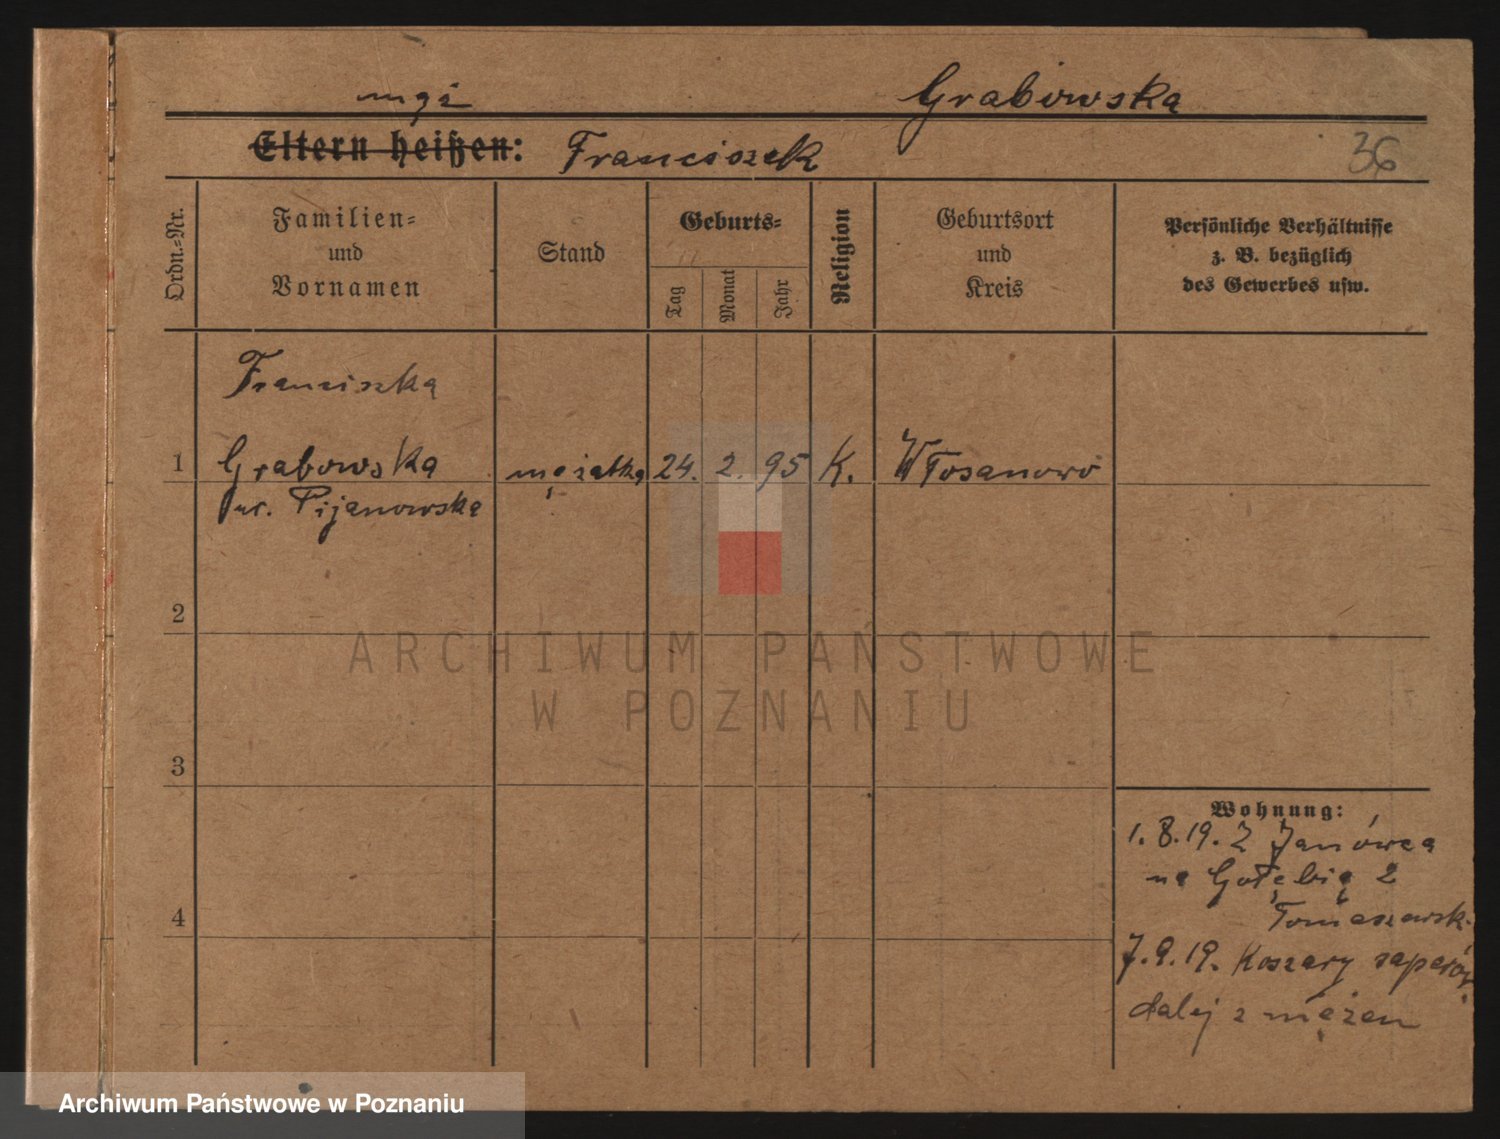 mąż Grabowska
Eltern heißen: Franciszek 36
Ordn.=Nr.
Familien=
und
Vornamen
Stand
Geburts=
Tag
Monat
Jahr
Religion
Geburtsort
und
Kreis
Persönliche Verhältnisse
z. B. bezüglich
des Gewerbes usw.
Franciszka
1 Grabowska mężatka 24. 2. 95 K. Włosanowo
ur. Pijanowska
2
ARCHIWUM PAŃSTWOWE
W POZNANIU
3
Wohnung:
1. 8. 19. Z Janówca
na Gołębią 2
4
Tomaszewsk.
7. 9. 19. Koszary saperów
dalej z mężem
Archiwum Państwowe w Poznaniu